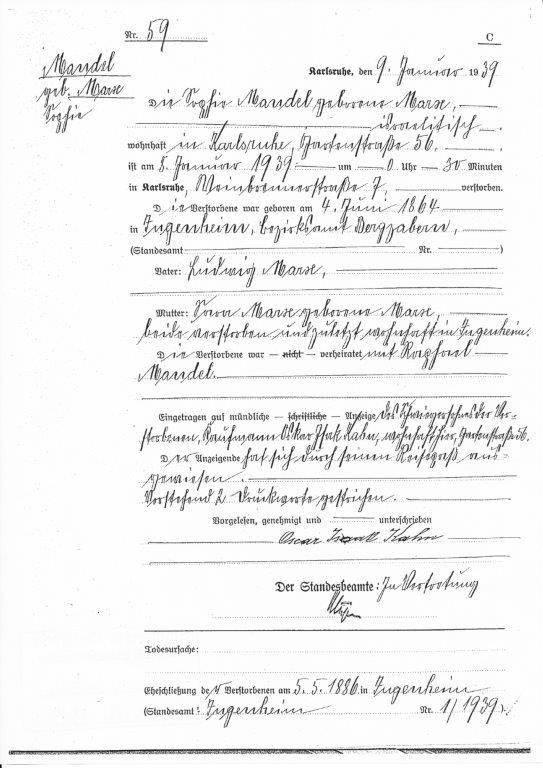 Nr. 59
C
Mandel
geb. Marse
Sophie
Karlsruhe, den 9. Januar 1939
Die Sophie Mandel geborene Marse,
israelitisch
wohnhaft in Karlsruhe, Gartenstraße 56.
ist am 8. Januar 1939 um 0 Uhr 30 Minuten
in Karlsruhe, Weinbrennerstraße 7, verstorben.
Die Verstorbene war geboren am 4. Juni 1864
in Ingenheim, Bezirksamt Bergzabern,
(Standesamt Nr. )
Vater: Ludwig Marse,
Mutter: Marse geborene Marse,
beide verstorben und zuletzt wohnhaft in Ingenheim.
Die Verstorbene war — nicht — verheiratet mit Raphael
Mandel.
Eingetragen auf mündliche — schriftliche — Anzeige des Schwiegersohnes der Ver-
storbenen, Kaufmann Oskar Isak Kahn, wohnhaft hier, Gartenstraße 56.
Der Anzeigende hat sich durch seinen Reisepaß aus-
gewiesen.
Vorstehend 2 Druckworte gestrichen.
Vorgelesen, genehmigt und unterschrieben
Oscar Isaak Kahn
Der Standesbeamte: In Vertretung
Todesursache:
Eheschließung der Verstorbenen am 5.5.1886 in Ingenheim
(Standesamt: Ingenheim Nr. 1/1939.)